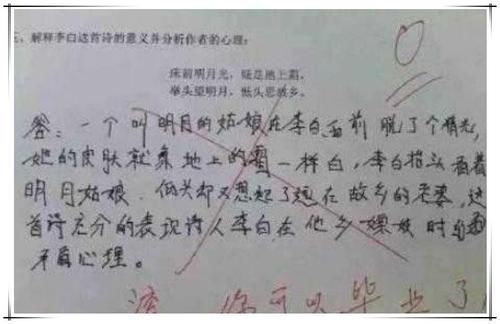 、解释李白这首诗的意义并分析作者的心理：
床前明月光，疑是地上霜，
举头望明月，低头思故乡。
答：一个叫明月的姑娘在李白面前脱了个精光，
她的皮肤就象地上的霜一样白，李白抬头看着
明月姑娘，低头却又想起了远在故乡的老婆，这
首诗充分的表现诗人李白在他乡嫖妓时的
矛盾心理。
你可以毕业了